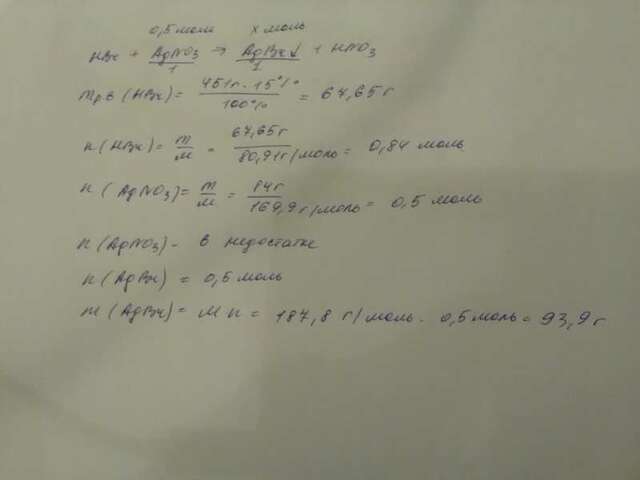 0,5 моль x моль
HBr + AgNO3 → AgBr↓ + HNO3
1 1
mр.в (HBr) = 451г · 15% / 100% = 67,65 г
n (HBr) = m/M = 67,65г / 80,91г/моль = 0,84 моль
n (AgNO3) = m/M = 84г / 169,9г/моль = 0,5 моль
n (AgNO3) - в недостатке
n (AgBr) = 0,5 моль
m (AgBr) = M n = 187,8 г/моль · 0,5 моль = 93,9 г